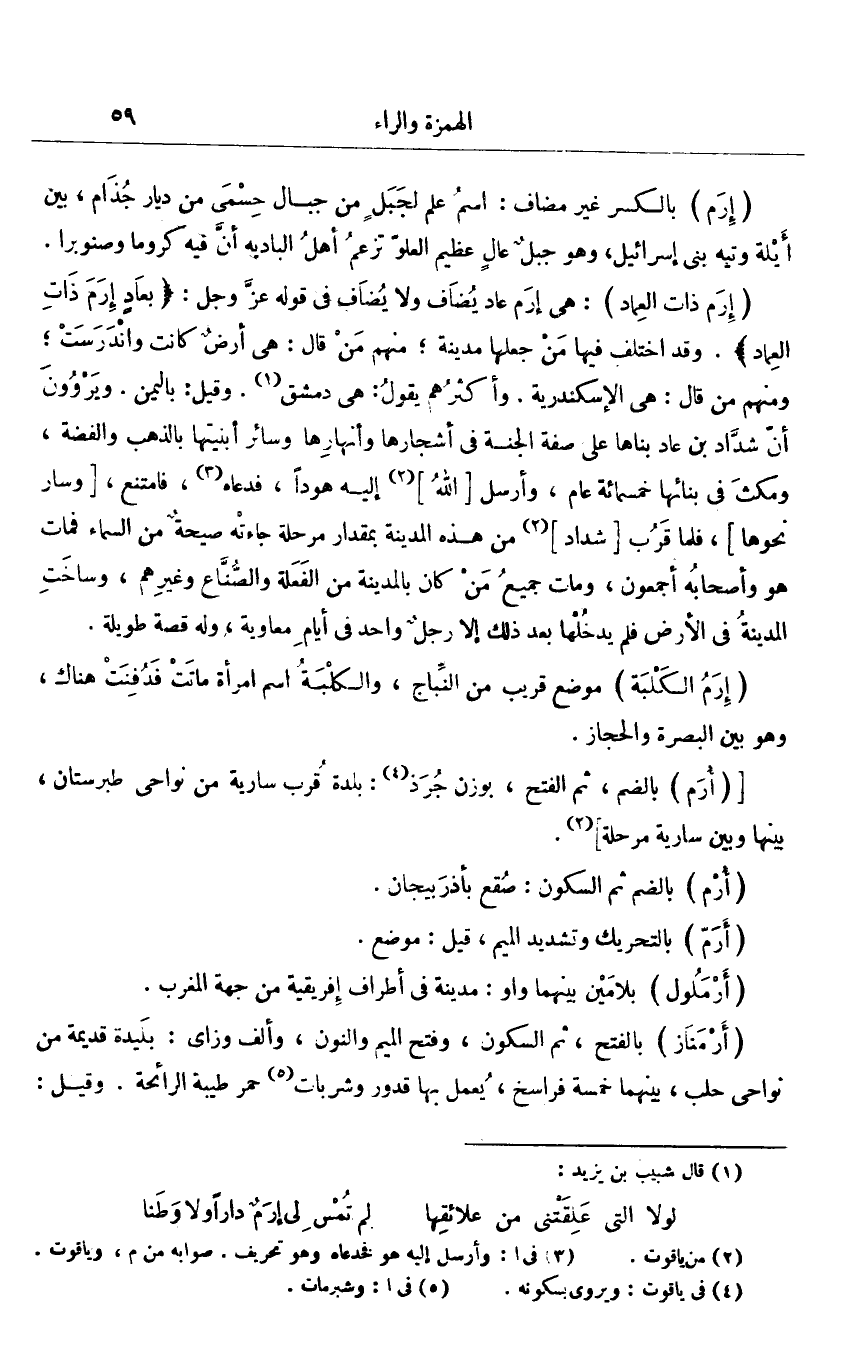 الهمزة والراء ٥٩
( إِرَم ) بالكسر غير مضاف : اسمُ علم لجَبَلٍ من جبال حِسْمَى من ديار جُذَام ، بين
أَيْلة وتيه بنى إسرائيل، وهو جبلٌ عالٍ عظيم العلوّ تزعمُ أهلُ الباديه أنَّ فيه كروما وصنوبرا .
( إِرَم ذات العِماد ) : هى إرَم عاد يُضَاف ولا يُضَاف فى قوله عزّ وجل : ﴿ بعَادٍ إِرَمَ ذَاتِ
العِماد ﴾ . وقد اختلف فيها مَنْ جعلها مدينة ؛ منهم مَنْ قال : هى أرضٌ كانت وانْدَرَسَتْ ؛
ومنهم من قال : هى الإسكندرية . وأكثرُهم يقولُ: هى دمشق(١) . وقيل: باليمن . ويَرْوُونَ
أنّ شدَّاد بن عاد بناها على صفة الجنة فى أشجارها وأنهارِها وسائر أبنيتها بالذهب والفضة ،
ومكثَ فى بنائها خمسمائة عام ، وأرسل [ اللهُ ](٢) إليه هوداً ، فدعاه(٣) ، فامتنع ، [ وسار
نحوها ] ، فلما قَرُب [ شداد ](٢) من هذه المدينة بمقدار مرحلة جاءتْه صيحةٌ من السماء فمات
هو وأصحابُه أجمعون ، ومات جميعُ مَنْ كان بالمدينة من الفَعَلة والصُّنَّاع وغيرِهم ، وساخَتِ
المدينةُ فى الأرض فلم يدخُلْها بعد ذلك إلا رجلٌ واحد فى أيامِ معاوية ، وله قصة طويلة .
( إِرَمُ الكَلْبَة ) موضع قريب من النِّباج ، والكَلْبَةُ اسم امرأة ماتَتْ فَدُفِنَتْ هناك ،
وهو بين البصرة والحجاز .
[ ( أُرَم ) بالضم ، ثم الفتح ، بوزن جُرَذ(٤) : بلدة قُرب سارية من نواحى طبرستان ،
بينها وبين سارية مرحلة](٢) .
( أُرْم ) بالضم ثم السكون : صُقع بأذرَبيجان .
( أَرَمّ ) بالتحريك وتشديد الميم ، قيل : موضع .
( أَرْمَلُول ) بلامَيْن بينهما واو : مدينة فى أطراف إفريقية من جهة المغرب .
( أَرْمَنَاز ) بالفتح ، ثم السكون ، وفتح الميم والنون ، وألف وزاى : بلَيدة قديمة من
نواحى حلب ، بينهما خمسة فراسخ ، يُعمل بها قدور وشربات(٥) حمر طيبة الرائحة . وقيل :
(١) قال شبيب بن يزيد :
لولا التى عَلِقَتْنى من علائقِها لم تُمْسِ لى إرَمٌ داراً ولا وَطَنا
(٢) من ياقوت . (٣) فى ا : وأرسل إليه هو فخدعاه وهو تحريف . صوابه من م ، وياقوت .
(٤) فى ياقوت : ويروى بسكونه . (٥) فى ا : وشبرمات .